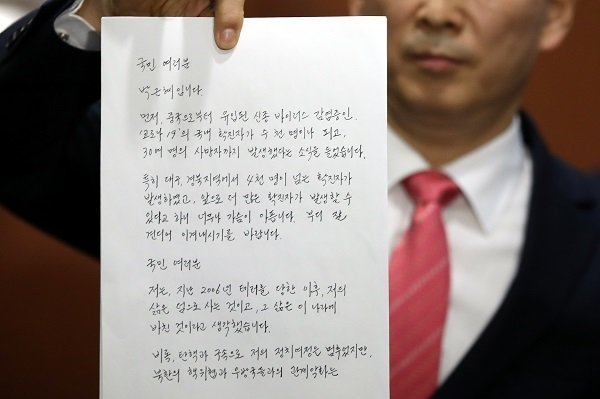 국민 여러분
박근혜입니다
먼저, 중국으로부터 유입된 신종 바이러스 감염증인
'코로나 19'의 국내 확진자가 수 천 명이나 되고,
30여 명의 사망자까지 발생했다는 소식을 들었습니다.
특히 대구, 경북지역에서 4천 명이 넘는 확진자가
발생하였고, 앞으로 더 많은 확진자가 발생할 수
있다고 하니 너무나 가슴이 아픕니다. 부디 잘
견디어 이겨내시기를 바랍니다.
국민 여러분
저는, 지난 2006년 테러를 당한 이후, 저의
삶은 덤으로 사는 것이고, 그 삶은 이 나라에
바친 것이라고 생각했습니다.
비록, 탄핵과 구속으로 저의 정치여정은 멈추었지만,
북한의 핵위협과 우방국들과의 관계악화는